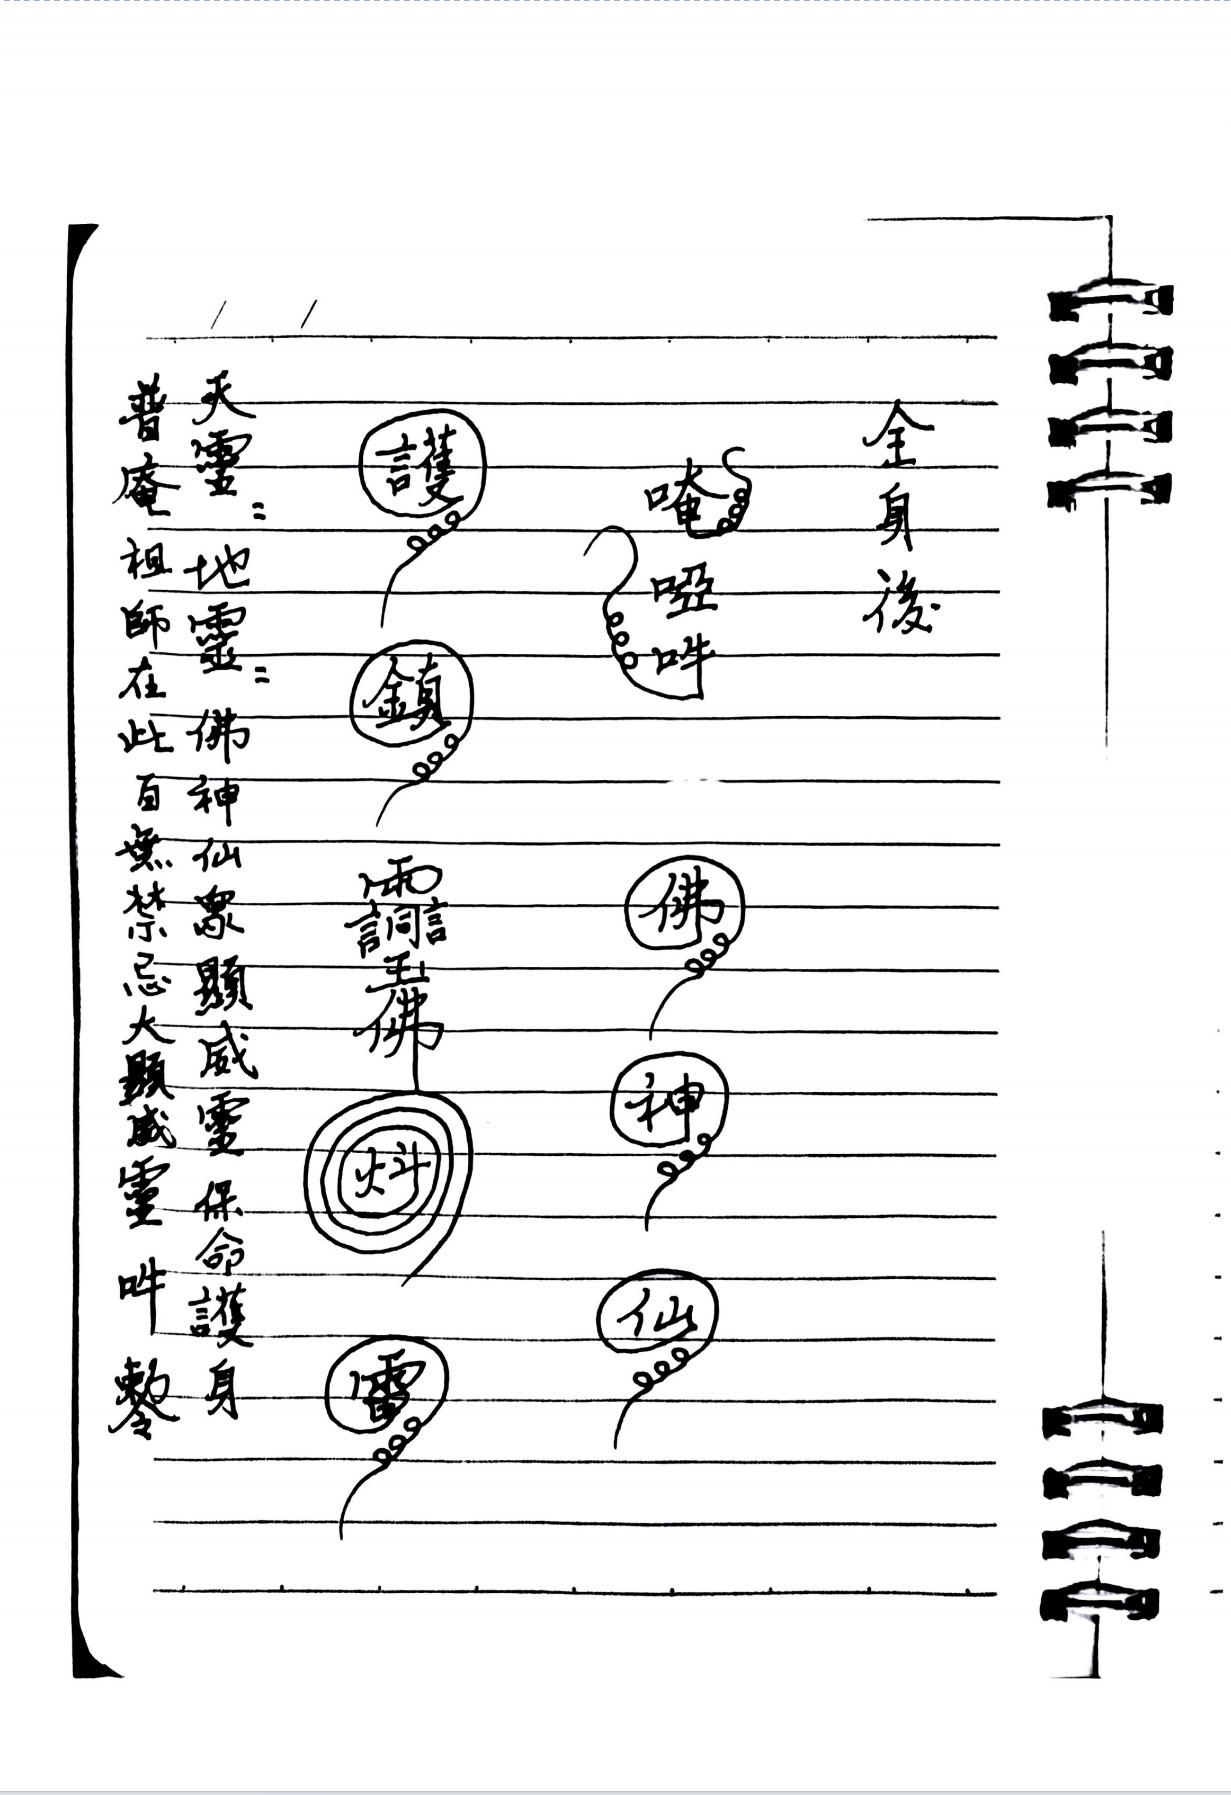 全身後
唵
啞吽
佛
神
仙
護
鎮
佛
雷
天靈〻地靈〻佛神仙眾顯威靈保命護身
普庵祖師在此百無禁忌大顯威靈吽敕令